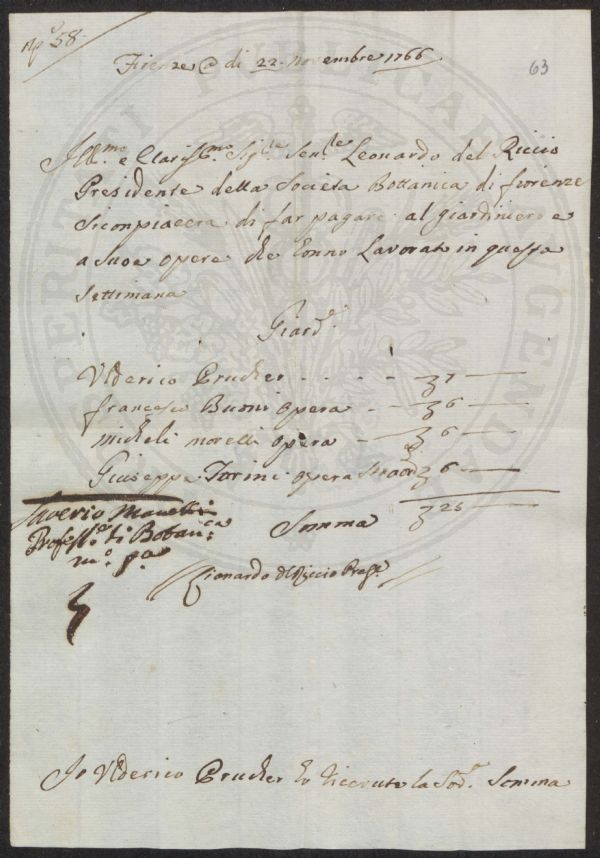 N.º 58.
63
Firenze @ di 22. Novembre 1766.
Ill.mo e Clariss.mo Sig.re Sen.re Leonardo del Riccio
Presidente della Società Bottanica di fiorenze
Siconpiacera di far pagare al giardiniero e
a Suoe opere che Ionno Lavorato in questa
Settimana
Giard.e
Ulderico Prucher . . . . - 7 —
francesco Buoni opera - 6 —
micheli morelli opera - 6 —
Giuseppe Torini opera Straord. 6 —
Somma 25 —
Saverio Manetti
Profess.e di Botan.ca
m.o p.a
Lionardo del Riccio Pres.e
Io Ulderico Prucher ho Riceuto la Sod.a Somma